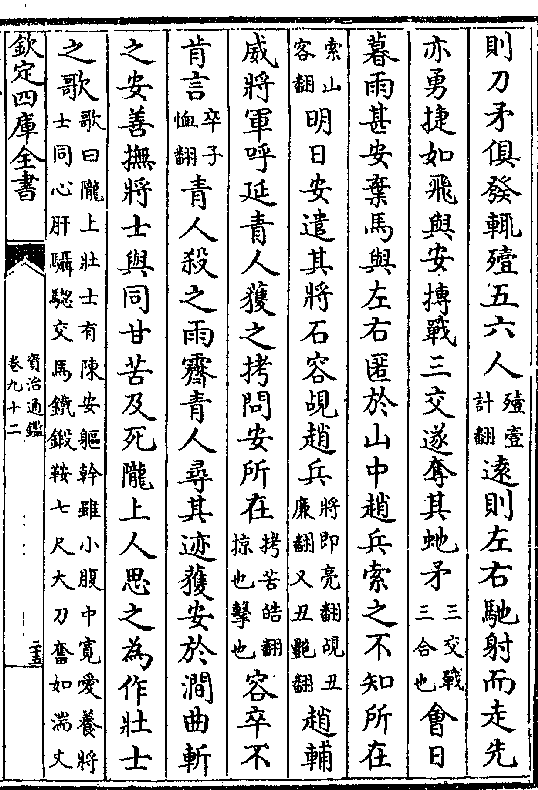 則刀矛俱發輒殪五六人殪壹計翻遠則左右馳射而走先
亦勇捷如飛與安搏戰三交遂奪其虵矛三交戰三合也會日
暮雨甚安棄馬與左右匿於山中趙兵索之不知所在
索山客翻明日安遣其將石容覘趙兵將即亮翻覘丑廉翻又丑艷翻趙輔
威將軍呼延青人獲之拷問安所在拷苦皓翻掠也擊也容卒不
肯言卒子恤翻青人殺之雨霽青人尋其迹獲安於澗曲斬
之安善撫將士與同甘苦及死隴上人思之為作壯士
之歌歌曰隴上壯士有陳安軀幹雖小腹中寛愛養將士同心肝䯀驄交馬鐵鍛鞍七尺大刀奮如湍丈
欽定四庫全書
資治通鑑
卷九十二
二十五